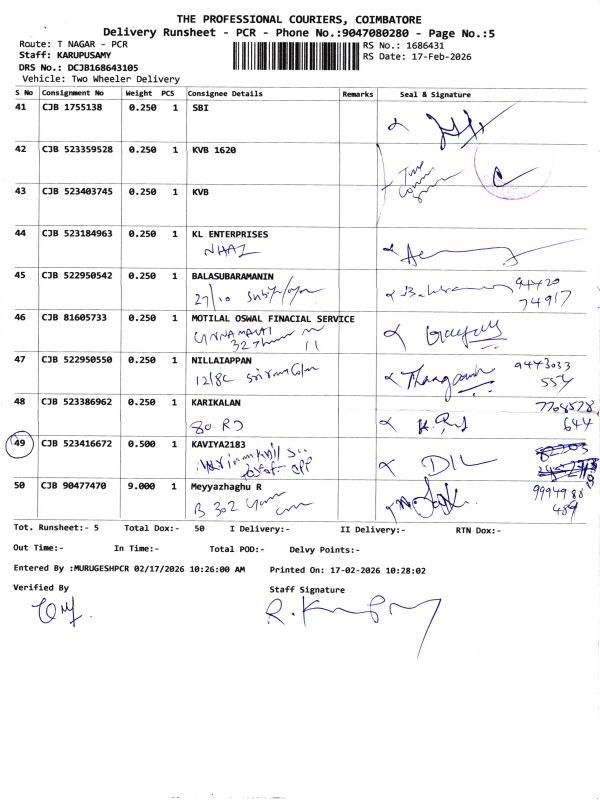 THE PROFESSIONAL COURIERS, COIMBATORE
Delivery Runsheet - PCR - Phone No.:9047080280 - Page No.:5
Route: T NAGAR - PCR RS No.: 1686431
Staff: KARUPUSAMY RS Date: 17-Feb-2026
DRS No.: DCJB168643105
Vehicle: Two Wheeler Delivery
S No Consignment No Weight PCS Consignee Details Remarks Seal & Signature
41 CJB 1755138 0.250 1 SBI
42 CJB 523359528 0.250 1 KVB 1620
43 CJB 523403745 0.250 1 KVB
44 CJB 523184963 0.250 1 KL ENTERPRISES
45 CJB 522950542 0.250 1 BALASUBARAMANIN
27/10 94420
74917
46 CJB 81605733 0.250 1 MOTILAL OSWAL FINACIAL SERVICE
47 CJB 522950550 0.250 1 NILLAIAPPAN
12/8C 9443033
48 CJB 523386962 0.250 1 KARIKALAN
7708578
80 RD 644
49 CJB 523416672 0.500 1 KAVIYA2183
DIL
50 CJB 90477470 9.000 1 Meyyazhaghu R
B 302 9994988
489
Tot. Runsheet:- 5 Total Dox:- 50 I Delivery:- II Delivery:- RTN Dox:-
Out Time:- In Time:- Total POD:- Delvy Points:-
Entered By :MURUGESHPCR 02/17/2026 10:26:00 AM Printed On: 17-02-2026 10:28:02
Verified By Staff Signature